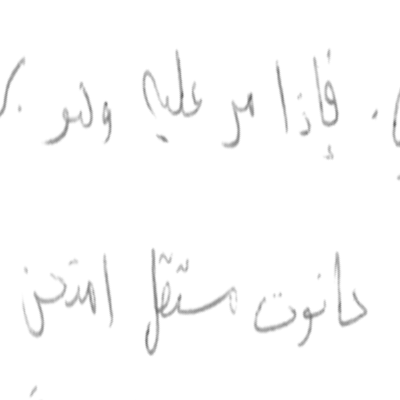 فإذا مر عليه وهو
حانوت مستقل امتحن